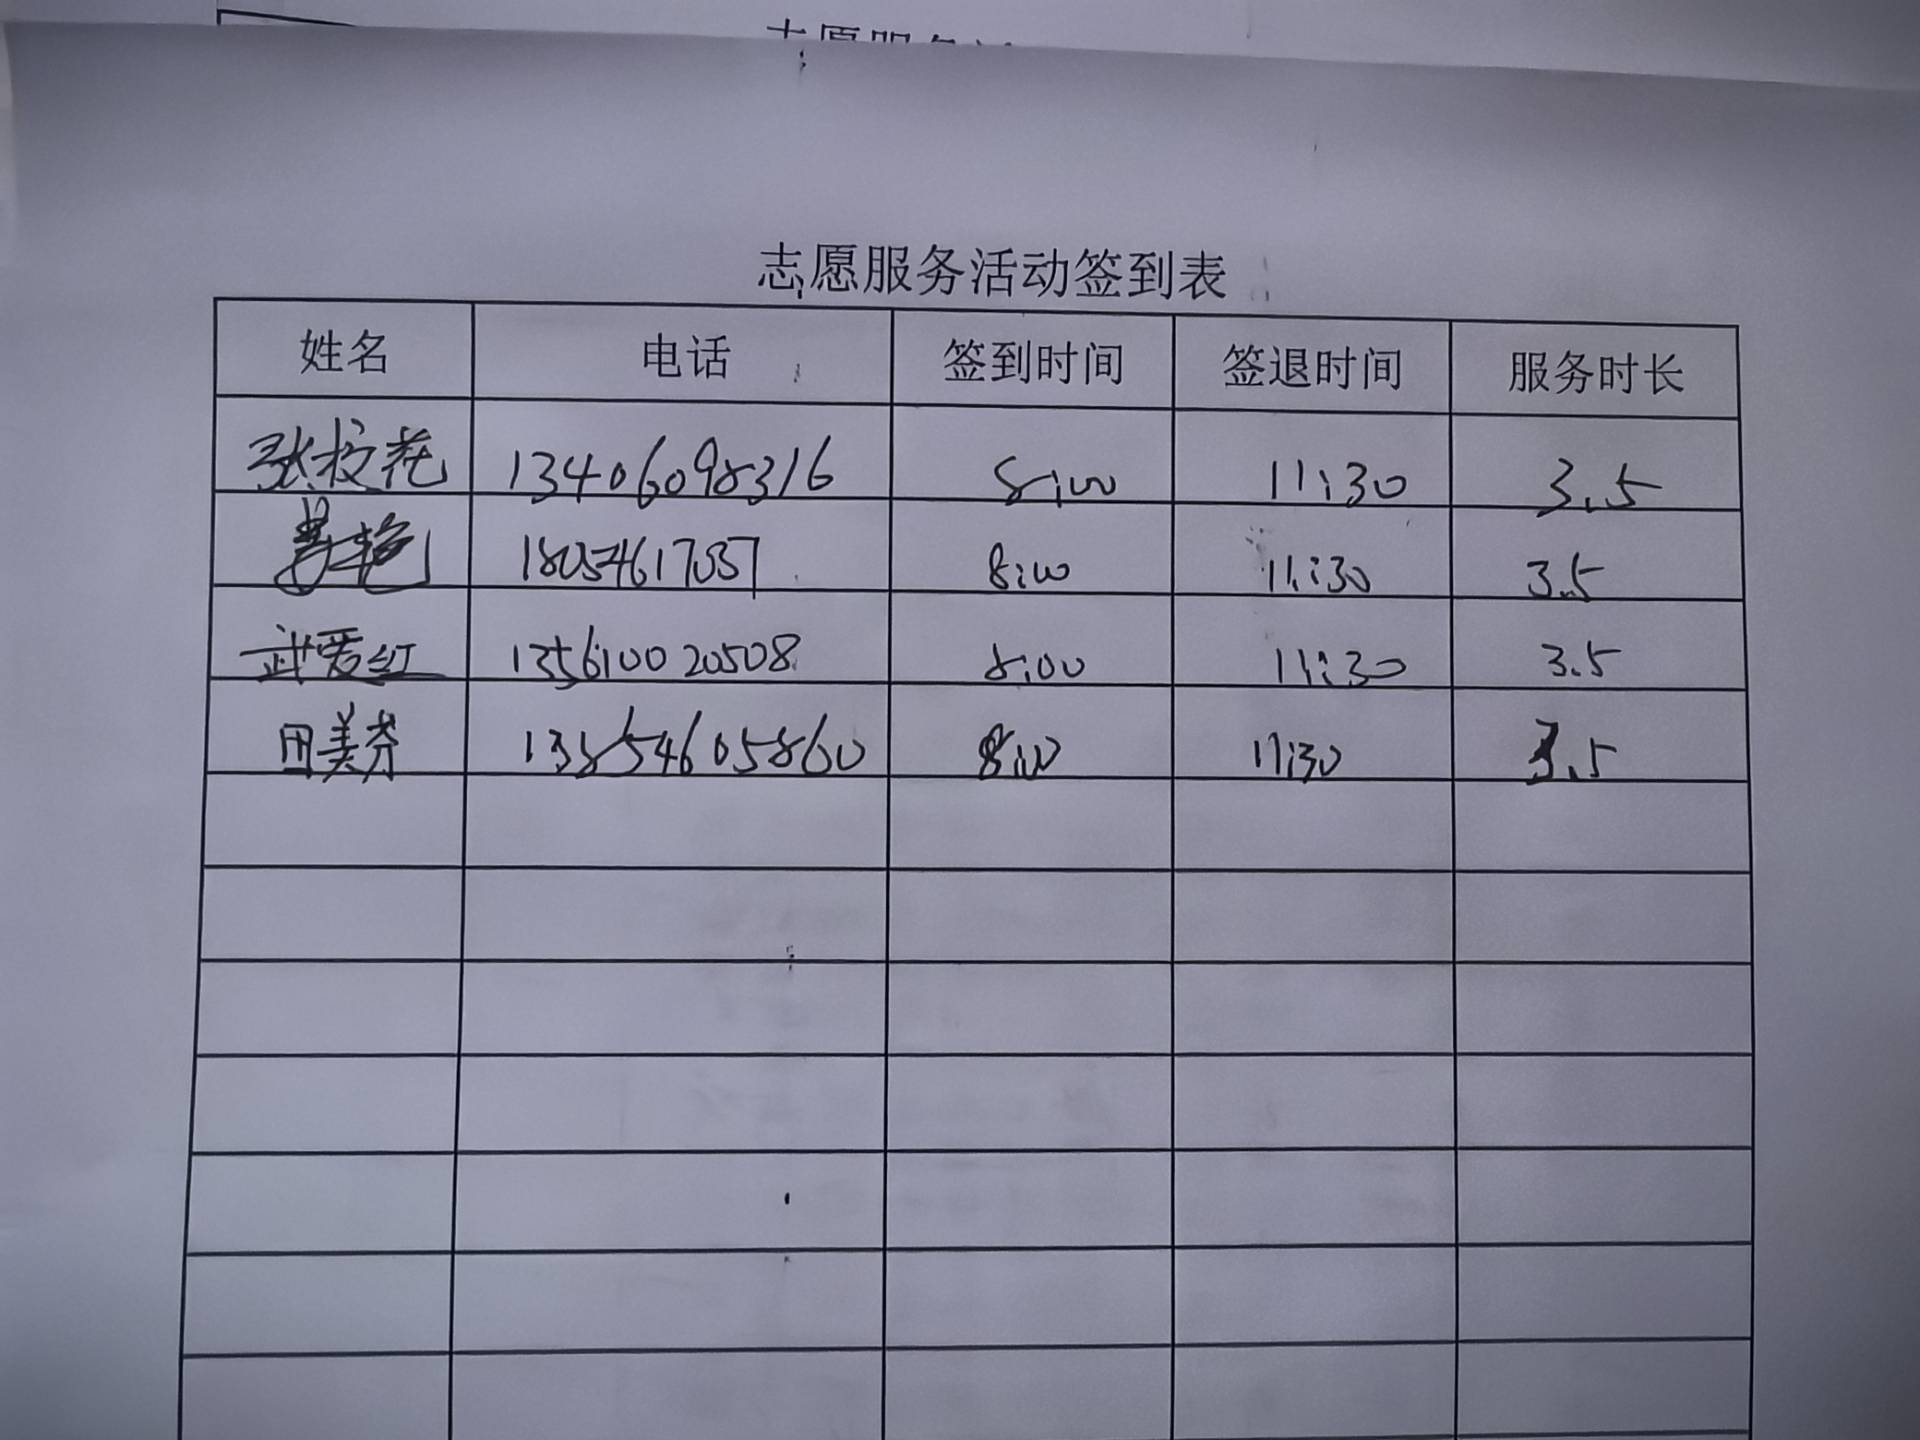 志愿服务活动签到表
姓名 电话 签到时间 签退时间 服务时长
张校花 13406098316 8:00 11:30 3.5
艳 8:00 11:30 3.5
武爱红 135610020508 8:00 11:30 3.5
田美芬 13854605860 8:00 11:30 3.5